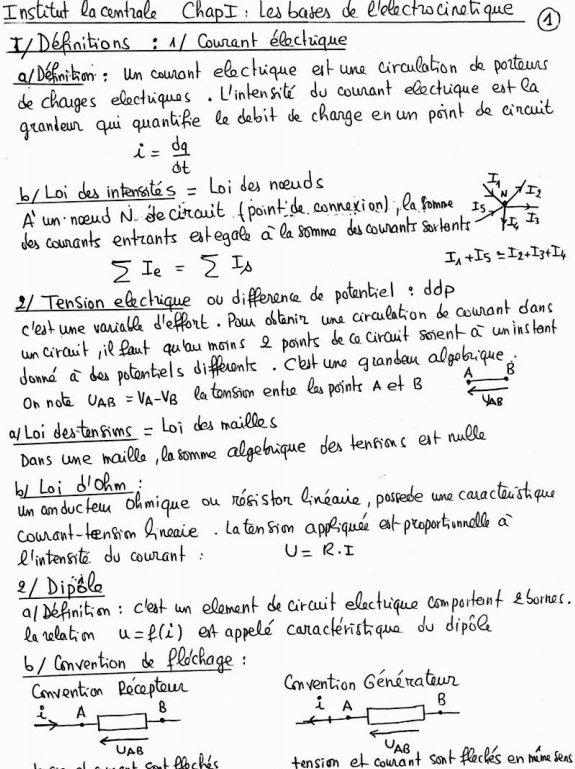 Institut la centrale Chap I : Les bases de l'électrocinetique ①
I/ Définitions : 1/ Courant électrique
a/ Définition : Un courant electrique est une circulation de porteurs
de charges electriques. L'intensité du courant electrique est la
grandeur qui quantifie le debit de charge en un point de circuit
i = dq/dt
b/ Loi des intensités = Loi des nœuds
A' un nœud N de circuit (point de connexion), la somme
des courants entrants est egale à la somme des courants sortants
I1 N I2 I5 I4 I3
∑ Ie = ∑ Is
I1 + I5 = I2+I3+I4
2/ Tension electrique ou difference de potentiel : ddp
c'est une variable d'effort. Pour obtenir une circulation de courant dans
un circuit, il faut qu'au moins 2 points de ce circuit soient à un instant
donné à des potentiels différents. C'est une grandeur algebrique.
On note UAB = VA-VB la tension entre les points A et B
A B
UAB
a/ Loi des tensions = Loi des mailles
Dans une maille, la somme algebrique des tensions est nulle
b/ Loi d'Ohm :
Un conducteur Ohmique ou résistor linéaire, possede une caractéristique
courant-tension lineaire. La tension appliquée est proportionnelle à
l'intensité du courant : U = R.I
2/ Dipôle
a/ Définition : c'est un element de circuit electrique comportant 2 bornes.
la relation u=f(i) est appelé caractéristique du dipôle
b/ Convention de fléchage :
Convention Récepteur Convention Générateur
i A B i A B
UAB UAB
courant sont fléchés tension et courant sont fléchés en même sens